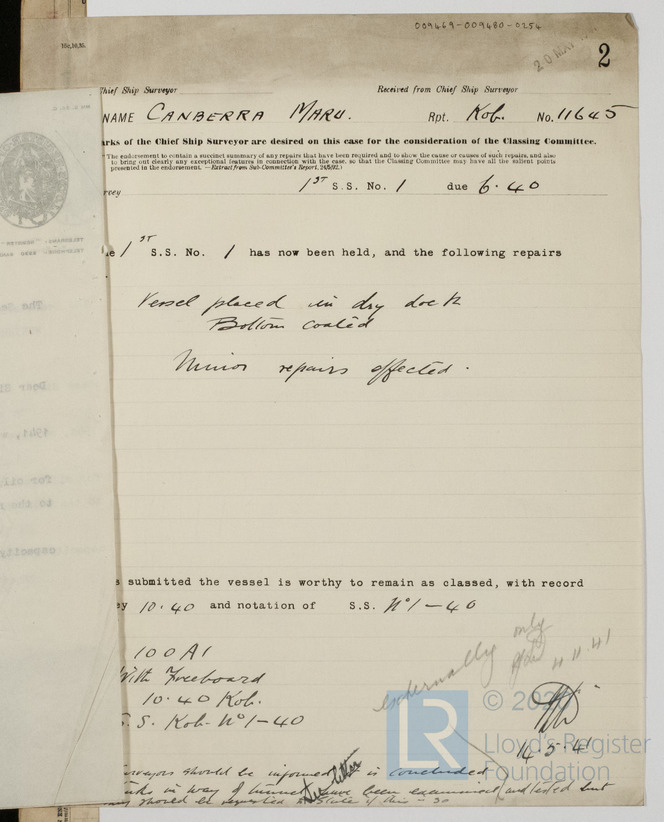 009469-009480-0254
20 MAY
2
Chief Ship Surveyor
Received from Chief Ship Surveyor
NAME CANBERRA MARU. Rpt. Kob. No. 11645
arks of the Chief Ship Surveyor are desired on this case for the consideration of the Classing Committee.
The endorsement to contain a succinct summary of any repairs that have been required and to show the cause or causes of such repairs, and also
to bring out clearly any exceptional features in connection with the case, so that the Classing Committee may have all the salient points
presented in the endorsement. —Extract from Sub-Committee's Report,
rvey 1ST S.S. No. 1 due 6.40
e 1ST S.S. No. 1 has now been held, and the following repairs
Vessel placed in dry dock
Bottom coated
Minor repairs effected.
s submitted the vessel is worthy to remain as classed, with record
ey 10.40 and notation of S.S. No 1-40
externally only
4.11.41
100A1
With Freeboard
10.40 Kob.
S.S. Kob. No 1-40
14.5.41
LR © 202
Lloyd's Register
Foundation
urveyors should be informed is concluded
See letter
in way of tunnel have been examined and tested but
should be reported